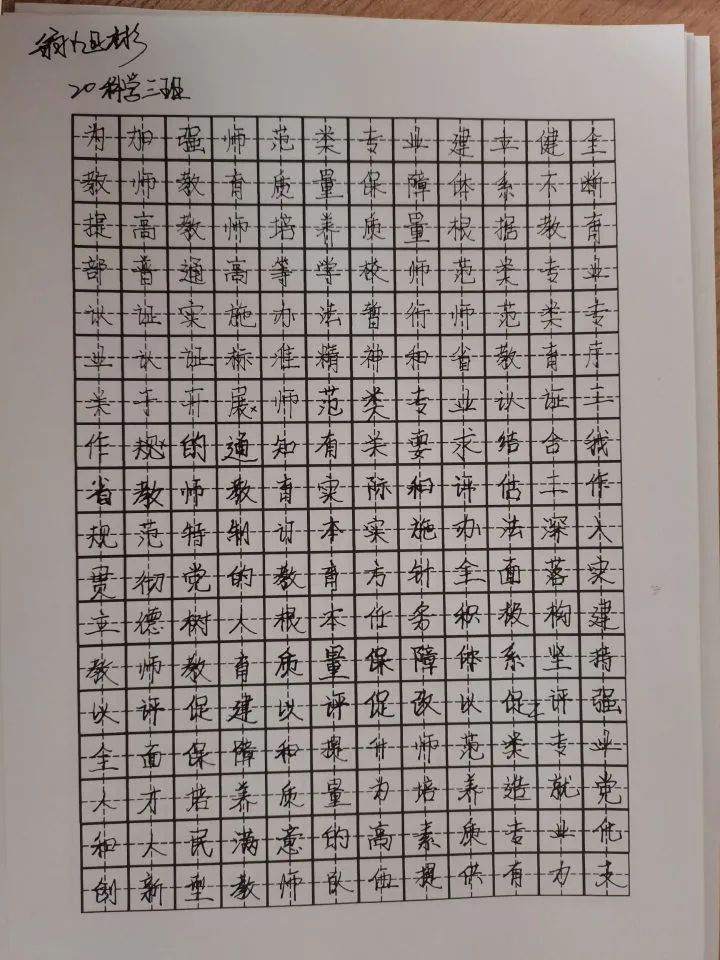 20科学三班
为加强师范类专业建立健全
教师教育质量保障体系不断
提高教师培养质量根据教育
部普通高等学校师范类专业
认证实施办法暂行师范类专
业认证标准精神和省教育厅
关于开展师范类专业认证工
作规的通知有关要求结合我
省教师教育实际和评估工作
规范特制订本实施办法深入
贯彻党的教育方针全面落实
立德树人根本任务积极构建
教师教育质量保障体系坚持
以评促建以评促改以促评强
全面保障和提升师范类专业
人才培养质量为培养造就党
和人民满意的高素质专业化
创新型教师队伍提供有力支